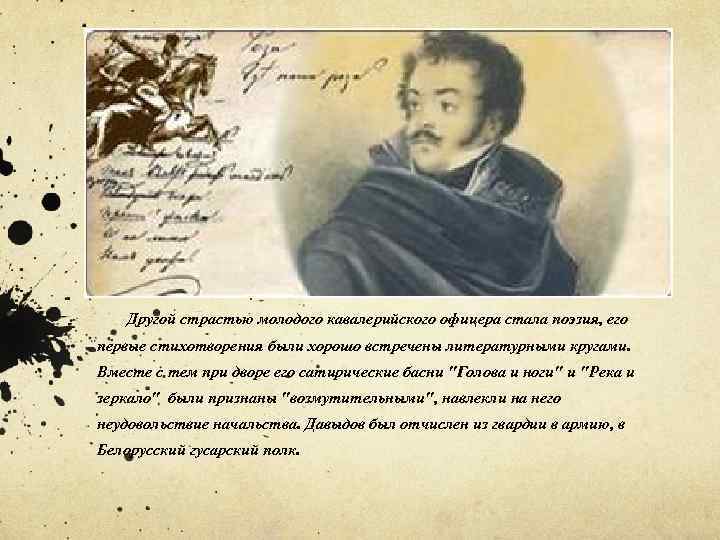 Другой страстью молодого кавалерийского офицера стала поэзия, его
первые стихотворения были хорошо встречены литературными кругами.
Вместе с тем при дворе его сатирические басни "Голова и ноги" и "Река и
зеркало" были признаны "возмутительными", навлекли на него
неудовольствие начальства. Давыдов был отчислен из гвардии в армию, в
Белорусский гусарский полк.